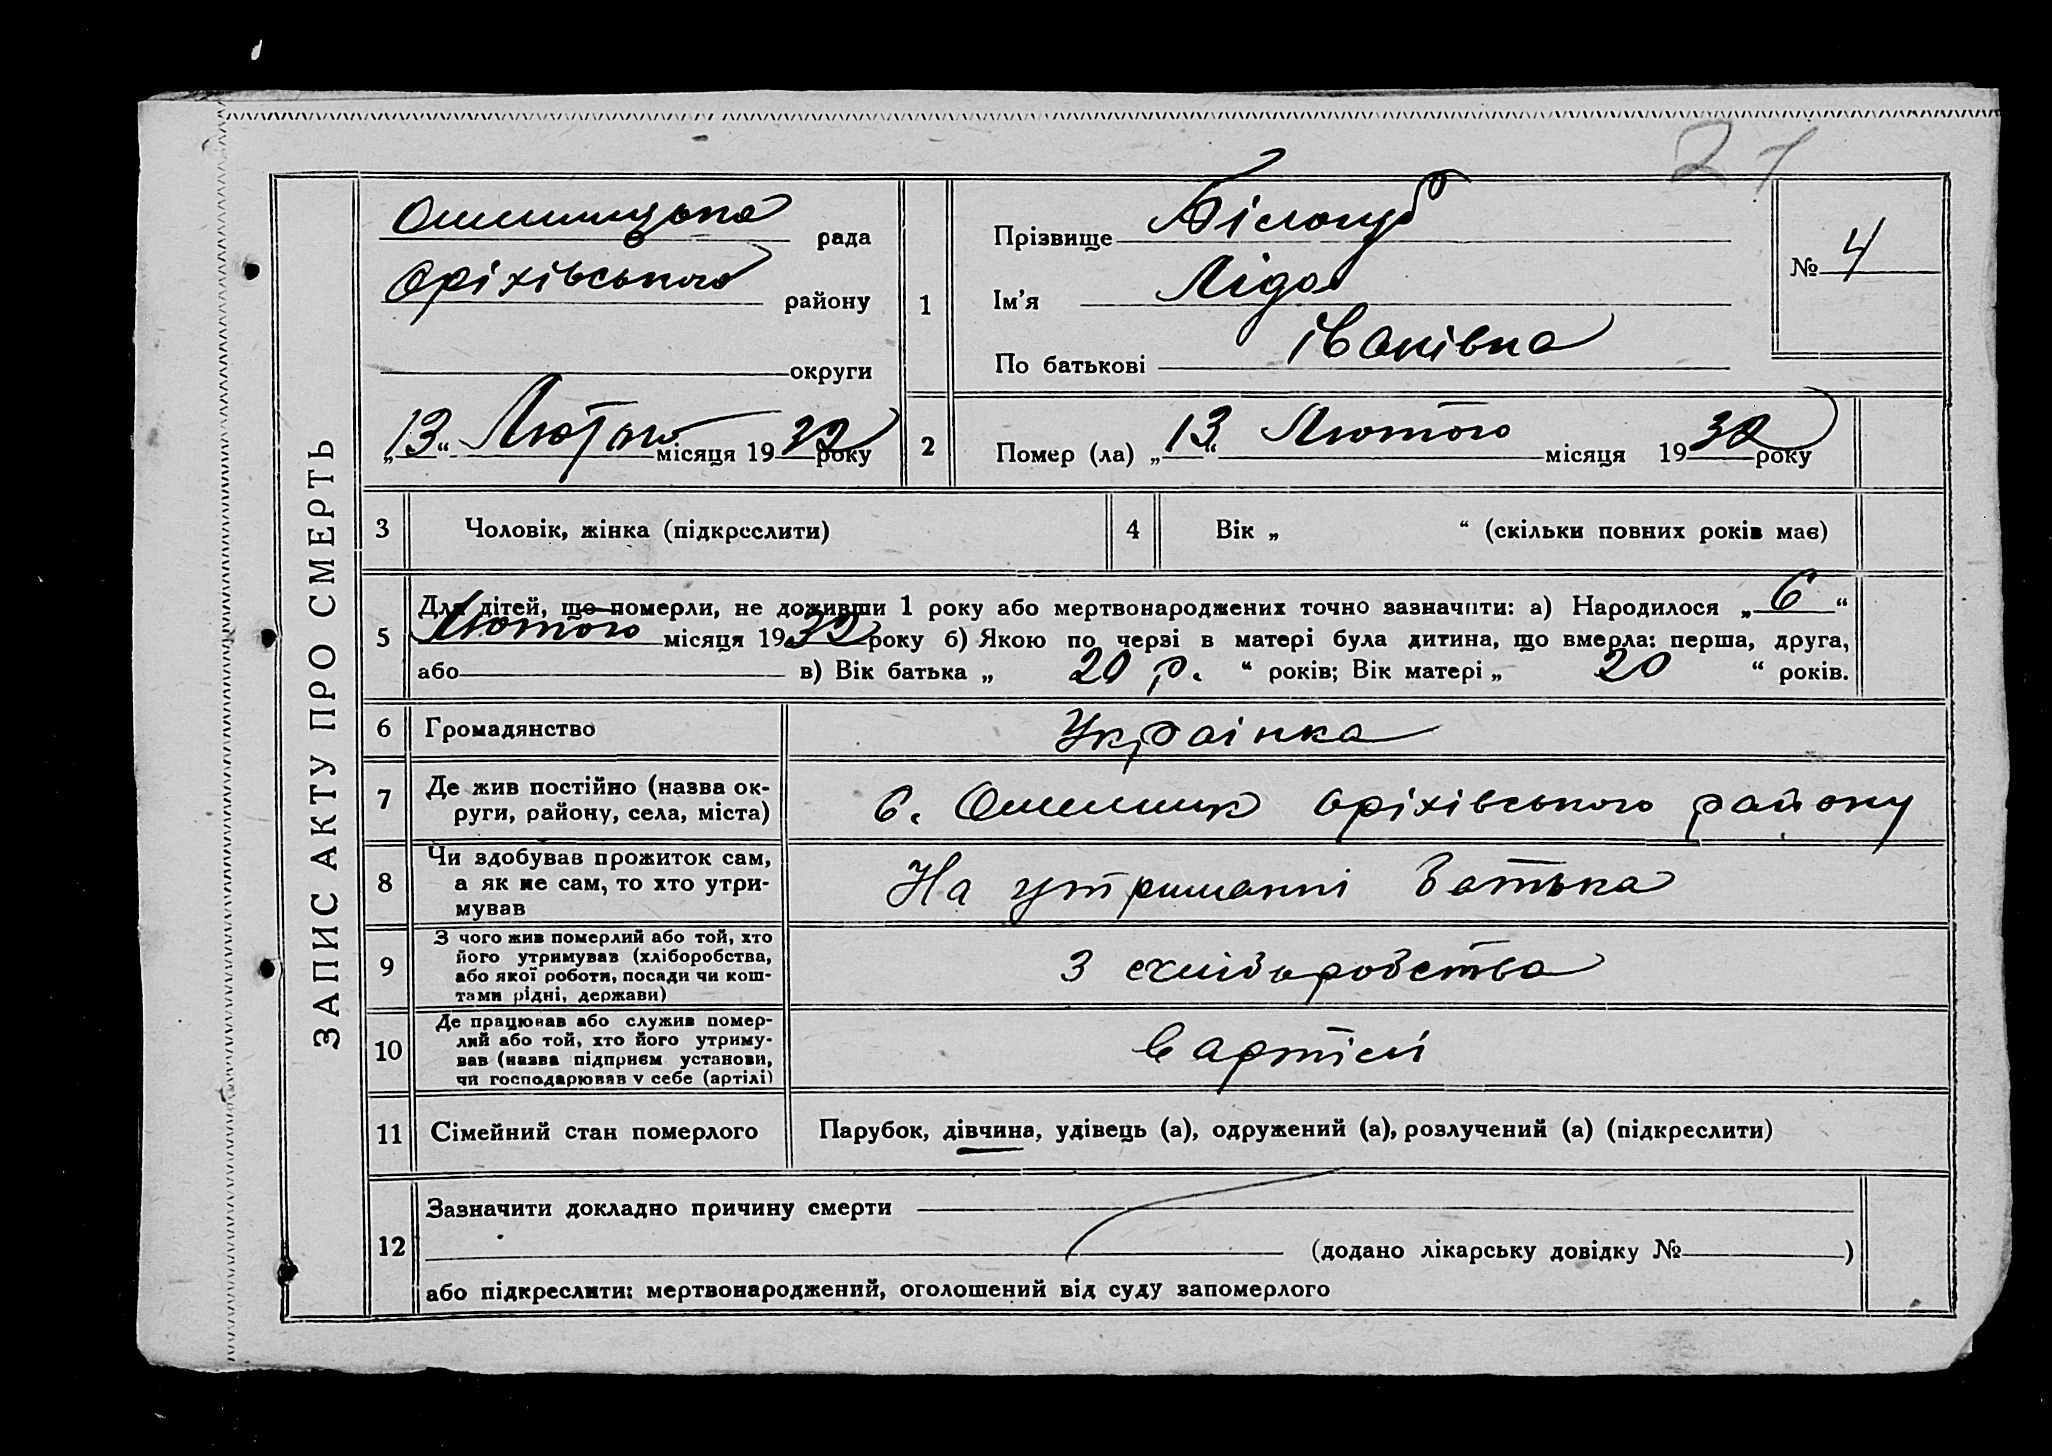 27
ЗАПИС АКТУ ПРО СМЕРТЬ
рада
Оріхівського району
округи
„13“ Лютого місяця 1932 року
1
Прізвище Білоцуб
Ім’я Ліда
По батькові івонівна
№ 4
2
Помер (ла) „13“ Лютого місяця 1932 року
3 Чоловік, жінка (підкреслити)
4 Вік „ “ (скільки повних років має)
5 Для дітей, що померли, не доживши 1 року або мертвонароджених точно зазначити: а) Народилося „6“
Лютого місяця 1932 року б) Якою по черзі в матері була дитина, що вмерла: перша, друга,
або в) Вік батька „ 20 р. “ років; Вік матері „ 20 “ років.
6 Громадянство
Українка
7 Де жив постійно (назва ок-
руги, району, села, міста)
с. Оріхівського району
8 Чи здобував прожиток сам,
а як не сам, то хто утри-
мував
На утриманні батька
9 З чого жив померлий або той, хто
його утримував (хліборобства,
або якої роботи, посади чи кош-
тами рідні, держави)
З схліборобства
10 Де працював або служив помер-
лий або той, хто його утриму-
вав (назва підприєм установи,
чи господарював у себе (артілі)
в артілі
11 Сімейний стан померлого
Парубок, дівчина, удівець (а), одружений (а), розлучений (а) (підкреслити)
12 Зазначити докладно причину смерти
(додано лікарську довідку № )
або підкреслити: мертвонароджений, оголошений від суду запомерлого